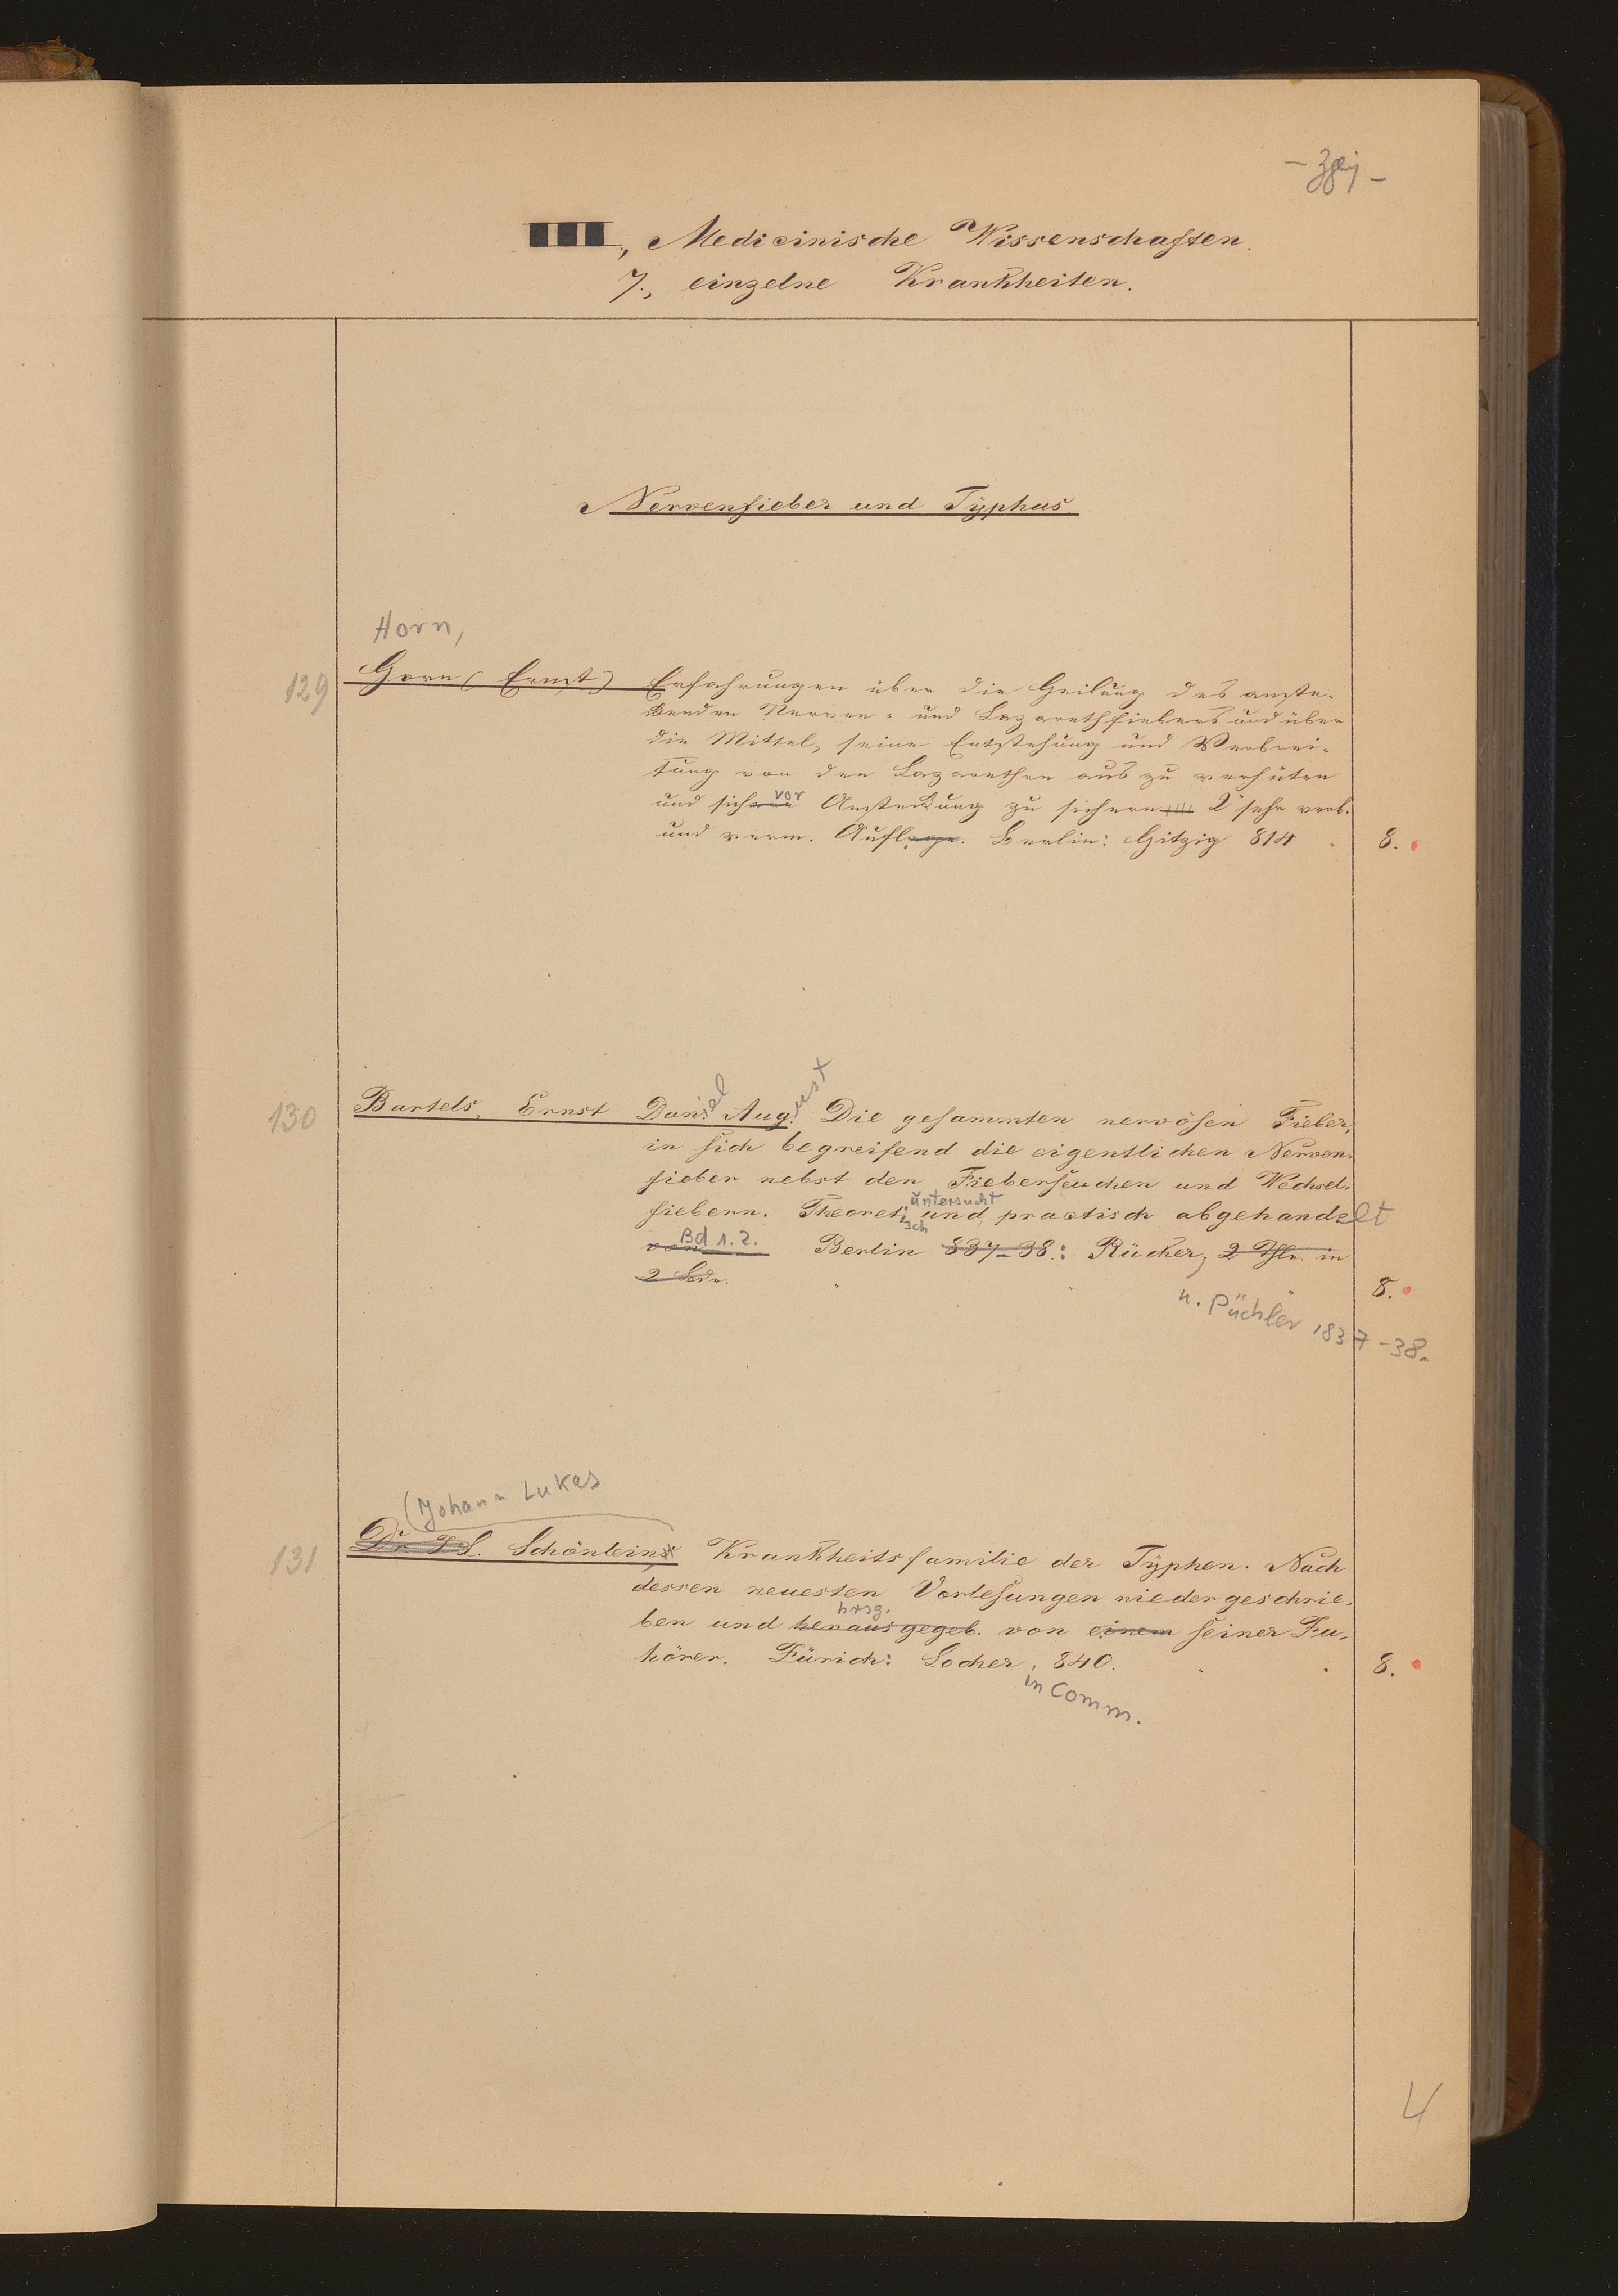 III, Medicinische Wissenschaften.
7., einzelne Krankheiten.
Nervenfieber und Typhus
Horn,
129 Horn (Ernst) Erfahrungen über die Heilung des anste-
ckenden Nerven- und Lazarethfiebers und über
die Mittel, seine Entstehung und Verbrei-
tung von den Lazarethen aus zu verhüten
und sich vor Ansteckung zu sichern 2 sehr verb.
und verm. Auflage. Berlin: Hitzig 814 8.
130 Bartels, Ernst Daniel August Die gesammten nervösen Fieber,
in sich begreifend die eigentlichen Nerven-
fieber nebst den Fieberseuchen und Wechsel-
fiebern. Theoretisch untersucht und practisch abgehandelt
von Bd 1.2. Berlin 837-38.: Rücker, 2 Thle. in
2 Bde. 8.
u. Püchler 1837-38.
(Johann Lukas
131 Dr J L. Schönleins Krankheitsfamilie der Typhen. Nach
dessen neuesten Vorlesungen niedergeschrie-
hrsg.
ben und herausgegeb. von einem seiner Zu-
hörer. Zürich: Locher, 840. 8.
in Comm.
4